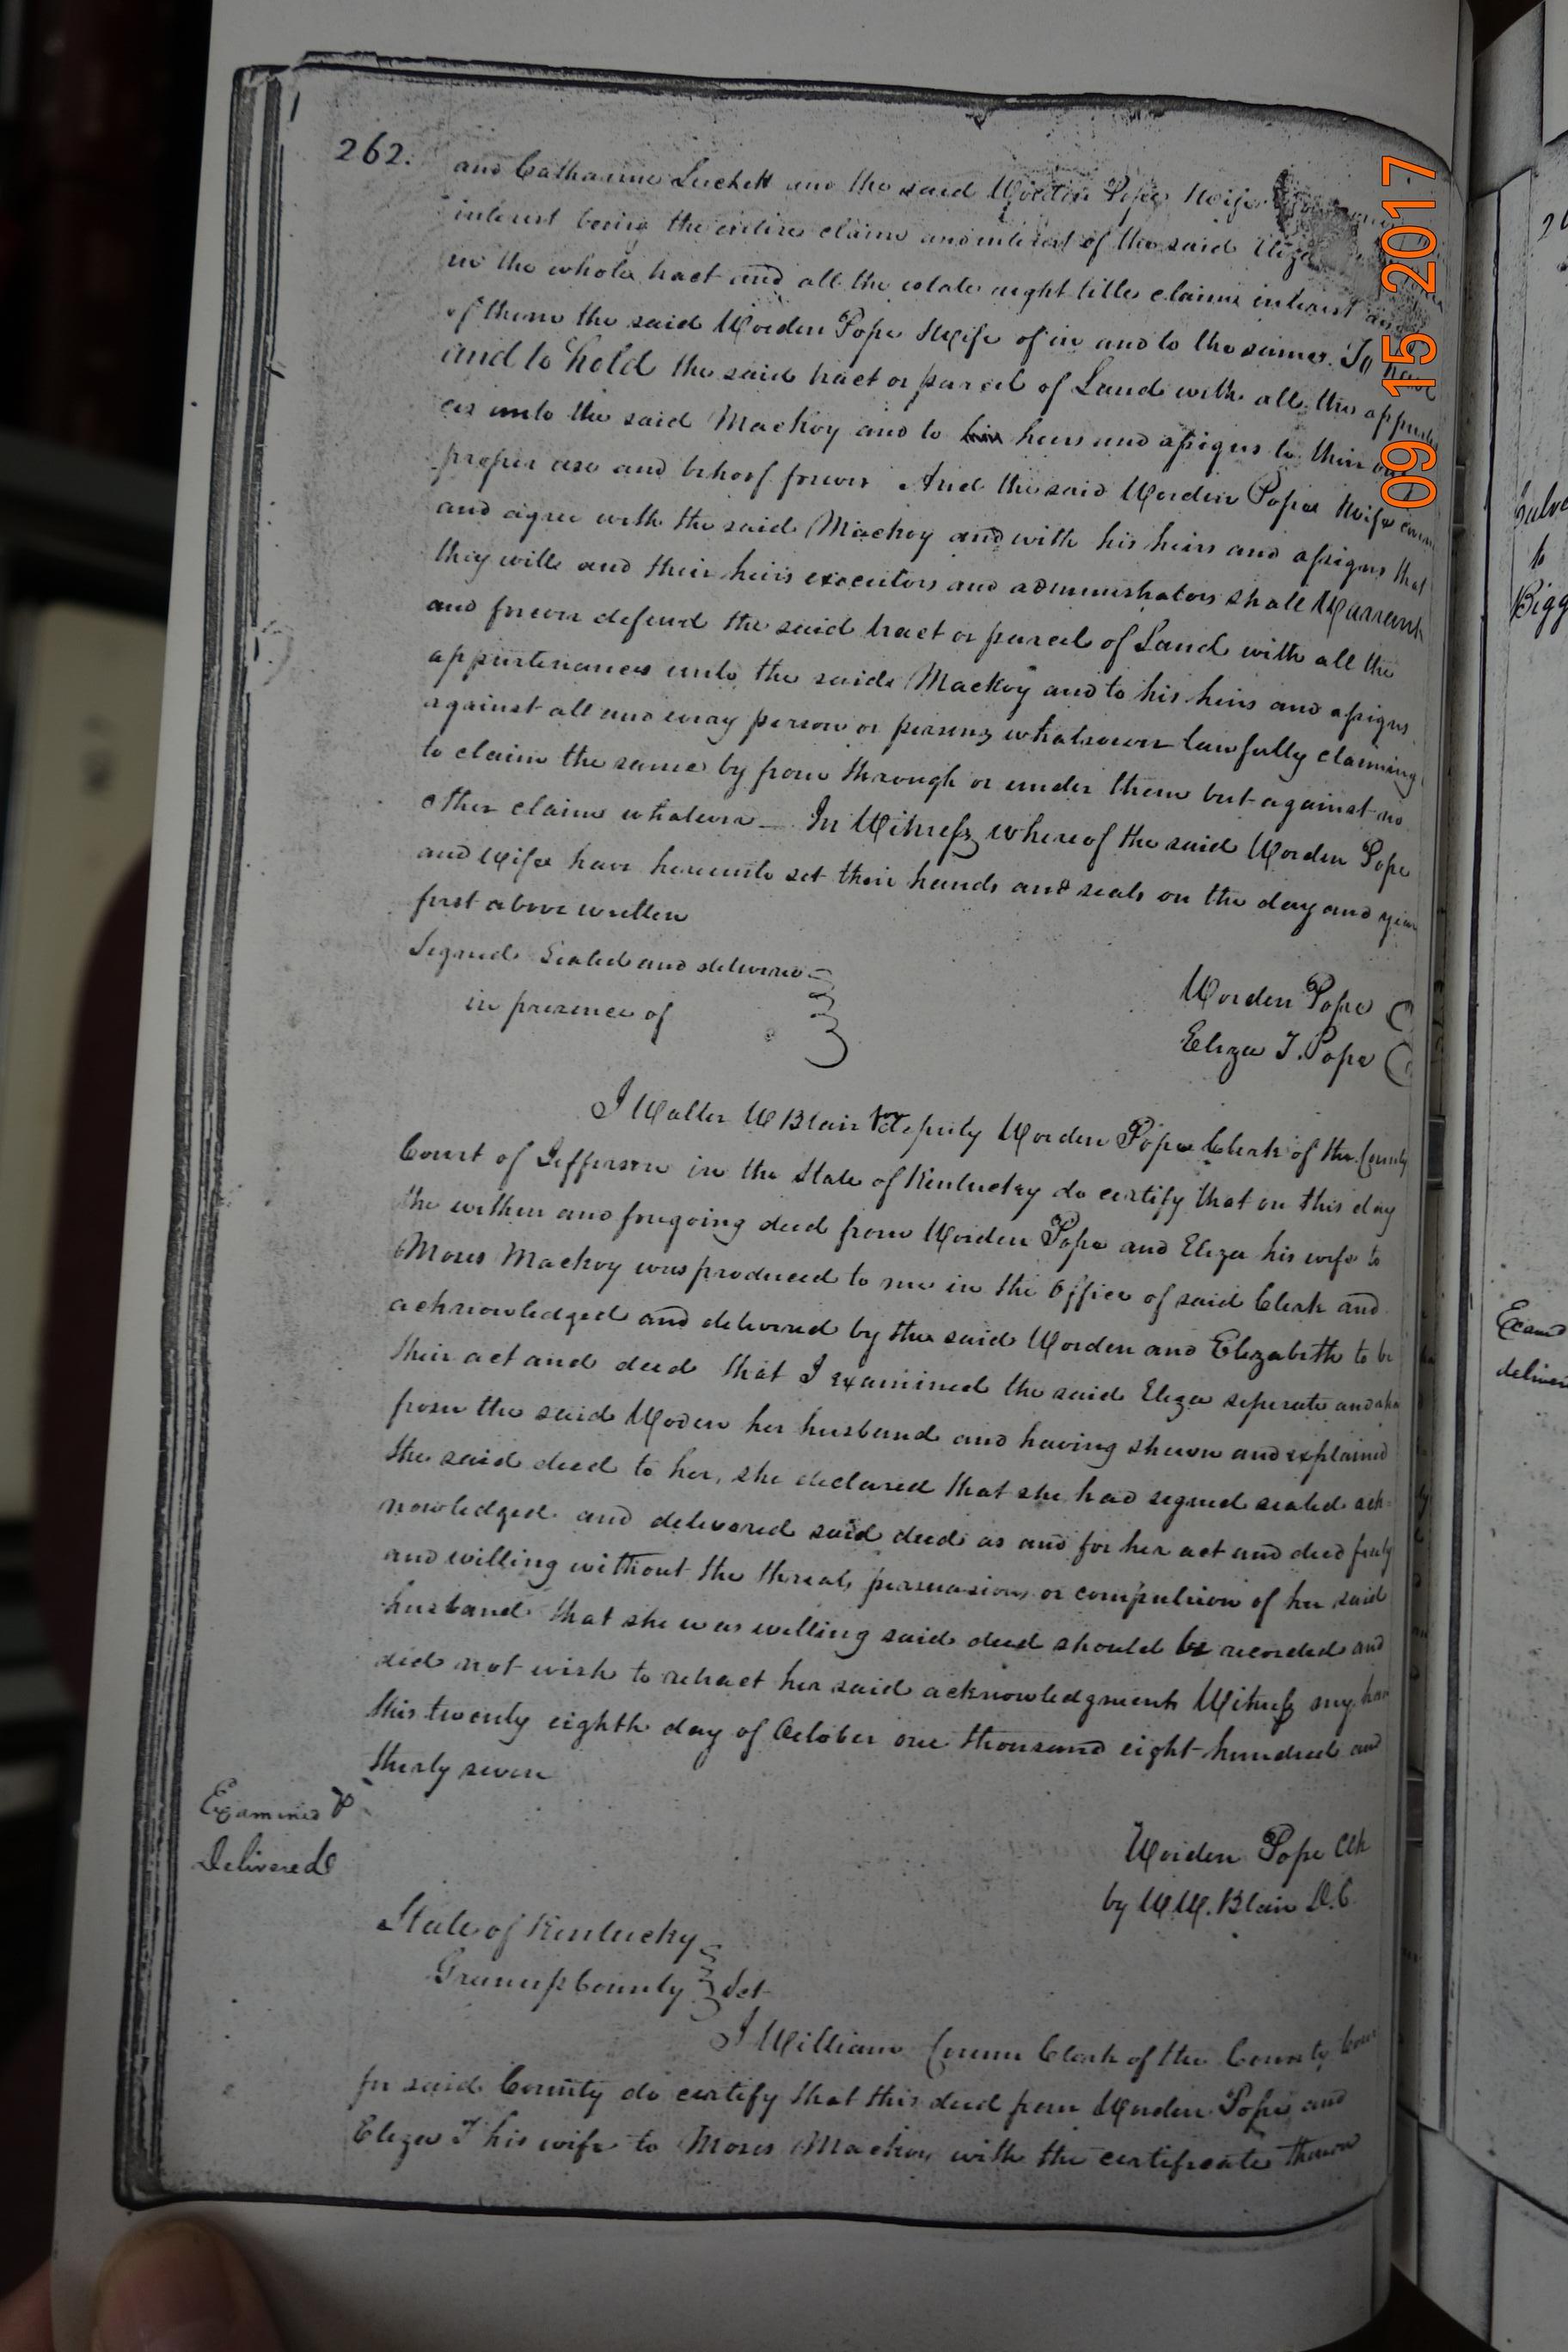 262.
and Catharine Luckett and the said Worden Pope & wife
interest being the entire claim and interest of the said Eliza
in the whole tract and all the estate right title claim interest and
of them the said Worden Pope & wife of in and to the same. To have
and to hold the said tract or parcel of Land with all the appurte
ces unto the said Mackoy and to his heirs and assigns to their own
proper use and behoof forever And the said Worden Pope & wife
and agree with the said Mackoy and with his heirs and assigns that
they will and their heirs executors and administrators shall Warrant
and forever defend the said tract or parcel of Land with all the
appurtenances unto the said Mackoy and to his heirs and assigns
against all and every person or persons whatsoever lawfully claiming
to claim the same by from through or under them but against no
other claim whatever _ In Witness whereof the said Worden Pope
and wife have hereunto set their hands and seals on the day and year
first above written
Signed Sealed and delivered
in presence of
Worden Pope
Eliza T. Pope
I Walter W Blair deputy Worden Pope Clerk of the County
Court of Jefferson in the State of Kentucky do certify that on this day
the within and foregoing deed from Worden Pope and Eliza his wife to
Moses Mackoy was produced to me in the office of said Clerk and
acknowledged and delivered by the said Worden and Elizabeth to be
their act and deed that I examined the said Eliza seperate and
from the said Woden her husband and having shewn and explained
the said deed to her, she declared that she had signed sealed ack-
nowledged and delivered said deed as and for her act and deed freely
and willing without the threats, persuasion, or compulsion of her said
husband that she was willing said deed should be recorded and
did not wish to retract her said acknowledgment Witness my hand
this twenty eighth day of October one thousand eight hundred and
thirty seven
Examined &
Delivered
Worden Pope Clk
by W W. Blair D.C.
State of Kentucky
Greenup County Sct
I William Corum Clerk of the County Cour
for said County do certify that this deed from Worden Pope and
Eliza T his wife to Moses Mackoy with the certificate thereon
09 15 2017
to
Bigg
Exam
deliver